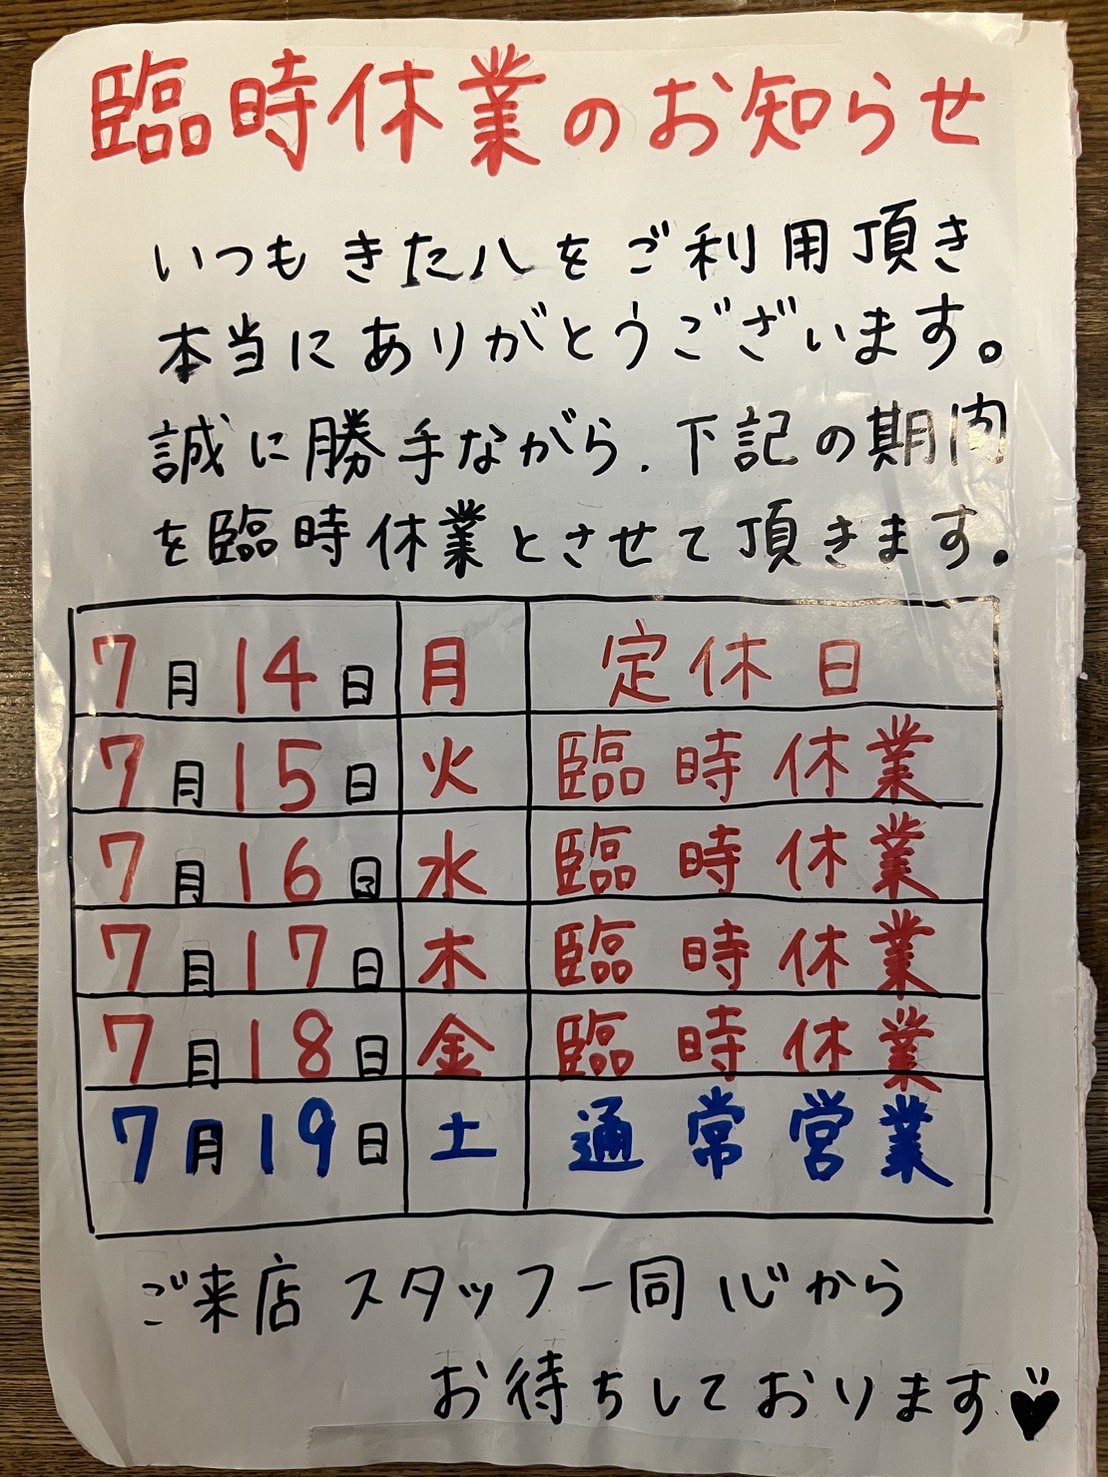 臨時休業のお知らせ
いつもきた八をご利用頂き
本当にありがとうございます。
誠に勝手ながら、下記の期間
を臨時休業とさせて頂きます。
7月14日 月 定休日
7月15日 火 臨時休業
7月16日 水 臨時休業
7月17日 木 臨時休業
7月18日 金 臨時休業
7月19日 土 通常営業
ご来店 スタッフ一同 心から
お待ちしております♥